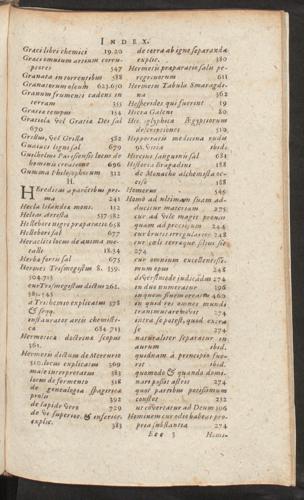 INDEX.
Graci libri chemici 19.20
Graci omnium artium corru-
ptores 547
Granata in torrentibus 588
Granatorum oleum 623.650
Granum frumenti cadens in
terram 355
Gratia tempus 154
Gratiola Vel Gratia Dei sal
670
Grillus, Vel Grilla 582
Guaiaci ligni sal 679
Guilhelmus Parisiensis locus de
hominis creatione 696
Gumma Philosophorum 312
H.
Hæreditas a patribus pri-
ma 241
Hecla Islandiæ mons 112
Helias Artista 517.582
Hellebori nigri præparatio 658
Hellebori sal 677
Heracliti locus de anima me-
tallis 18.34
Herba fortis sal 675
Hermes Trismegistus 8. 159.
304.713
eur Trismegistus dictus 261.
381.545
à Trithemio explicatus 378
& seqq.
instaurator artis chemisti-
ca 684 713
Hermetica doctrina scopus
361.
Hermetis dictum de Mercurio
310. locus explicatus 369
male interpretatus 383
locus de fermento 518
de genealogia spagirica
prolis 392
de lapide Vero 729
de Vi superior. & inferior.
explic. 383
de terra ab igne separanda
explic. 380
Hermetis præparatio salis pe-
regrinorum 611
Hermetis Tabula Smaragdi-
362
Hesperides qui fuerint 19
Hiera Galeni 80
Hieroglyphica Ægyptiorum
descriptiones 519
Hipporatis medicina nuda
91. Vitia ibid.
Hircinis sanguinis sal 681
Historia Bragadini 188
de Monacho alchemista oc-
ciso 188
Homerus 549
Homo ad nihilum suam ad-
ducitur materiam 275
cur ad Vile magis pronus
quam ad pretiosum 244
cur brutis irregularior 248
cur cæli terraque filius sit
274
cur omnium excellentissi-
mum opus 248
diversimode iudicandum 272
in duo numeratur 296
in quod omnes mundi
transmutare movet 274
intra se potest, quod extra
se 274
naturaliter separatur in
aurum ibid.
quidnam à principio fue-
rit ibid.
quomodo & quando domi-
nari possit astris 274
quot partibus potissimum
constet 232
ut convertatur ad Deum 306
Hominem cur odio habeat pro-
pria substantia 274
Eee 3 Homi-